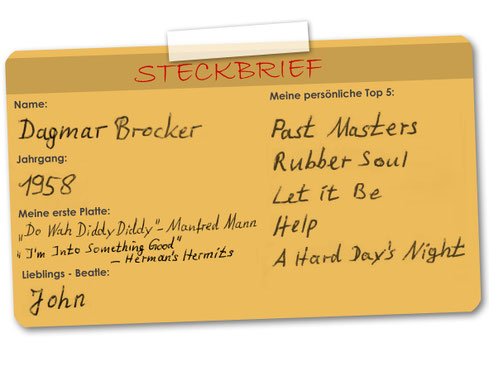 STECKBRIEF
Name:
Dagmar Brocker
Jahrgang:
1958
Meine erste Platte:
„Do Wah Diddy Diddy" - Manfred Mann
„I'm Into Something Good"
– Herman's Hermits
Lieblings - Beatle:
John
Meine persönliche Top 5:
Past Masters
Rubber Soul
Let it Be
Help
A Hard Day's Night